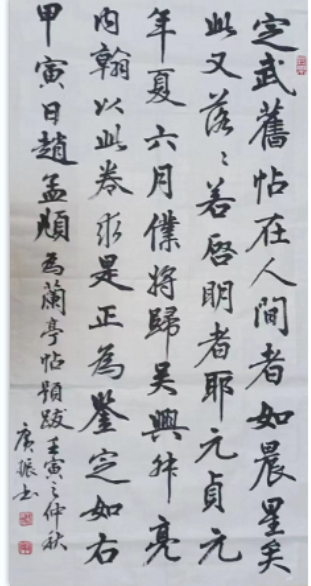 定武舊帖在人間者如晨星矣
此又落〻若啓明者耶元貞元
年夏六月僕將歸吴興叔亮
内翰以此卷求是正為鑒定如右
甲寅日趙孟頫為蘭亭帖題跋壬寅之仲秋
廣振书